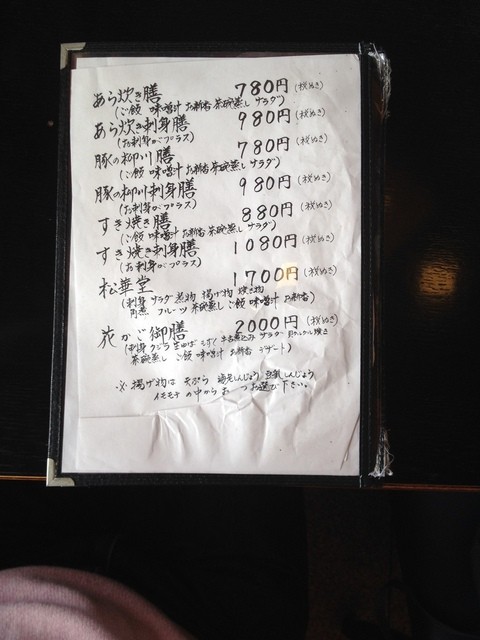 あら炊き膳 780円(税ぬき)
(ご飯 味噌汁 お新香 茶碗蒸し サラダ)
あら炊き刺身膳 980円(税ぬき)
(お刺身がプラス)
豚の柳川膳 780円(税ぬき)
(ご飯 味噌汁 お新香 茶碗蒸し サラダ)
豚の柳川刺身膳 980円(税ぬき)
(お刺身がプラス)
すき焼き膳 880円(税ぬき)
(ご飯 味噌汁 お新香 茶碗蒸し サラダ)
すき焼き刺身膳 1080円(税ぬき)
(お刺身がプラス)
松華堂 1700円(税ぬき)
(刺身 サラダ 煮物 揚げ物 焼き物
角煮 フルーツ 茶碗蒸し ご飯 味噌汁 お新香)
花かご御膳 2000円(税ぬき)
(刺身 クジラ 生ゆば もずく 牛 煮込み サラダ
茶碗蒸し ご飯 味噌汁 お新香 デザート)
※揚げ物は 天ぷら 海老しんじょう 豆乳しんじょう
イモモチ の中から お一つお選び下さい。